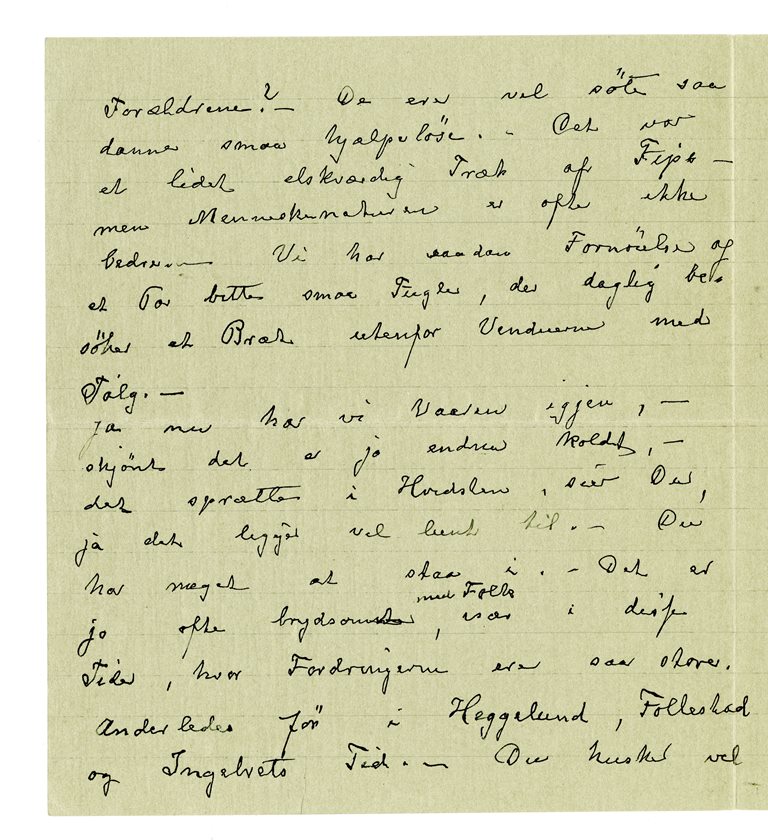 Forældrene? — De ere vel söte saa
danne smaa hjælpelöse. - Det var
et lidet elskværdig Træk af Fips —
men Menneskenaturen er ofte ikke
bedre. — Vi har saadan Fornöielse og
et Par bitte smaa Fugle, der daglig be-
söker et Bræt utenfor Vinduerne med
Talg. —
Ja nu har vi Vaaren igjen, —
skjönt det er jo endnu koldt, —
det sprætter i Hvidslen, siér Du,
ja det ligger vel lunt til. — Du
har meget at staa i. - Det er
jo ofte brydsomt med Folk, især i disse
Tider, hvor Fordringerne ere saa store.
Anderledes för i Heggelund, Folleskad
og Ingebrets Tid. — Du husker vel